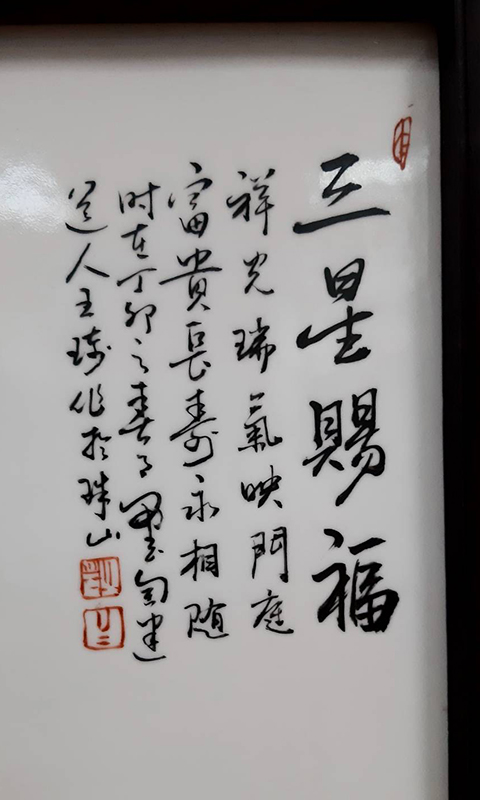 三星賜福
祥光瑞氣映門庭
富貴長壽永相随
时在丁卯之春月
道人王琦作於珠山